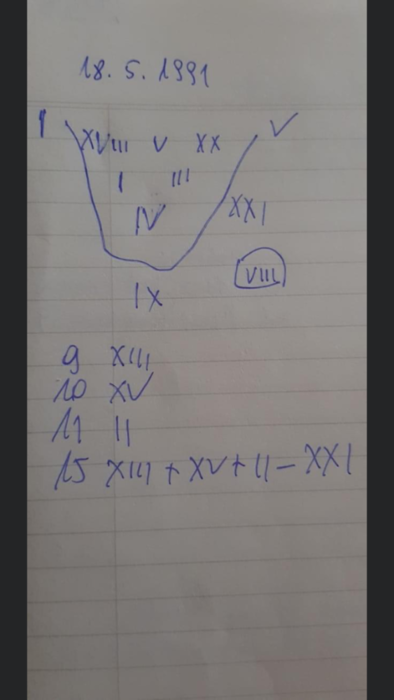 18. 5. 1991
I V
XVIII V XX
I III
IV XXI
VIII
IX
9 XIII
10 XV
11 II
15 XIII + XV + II - XXI